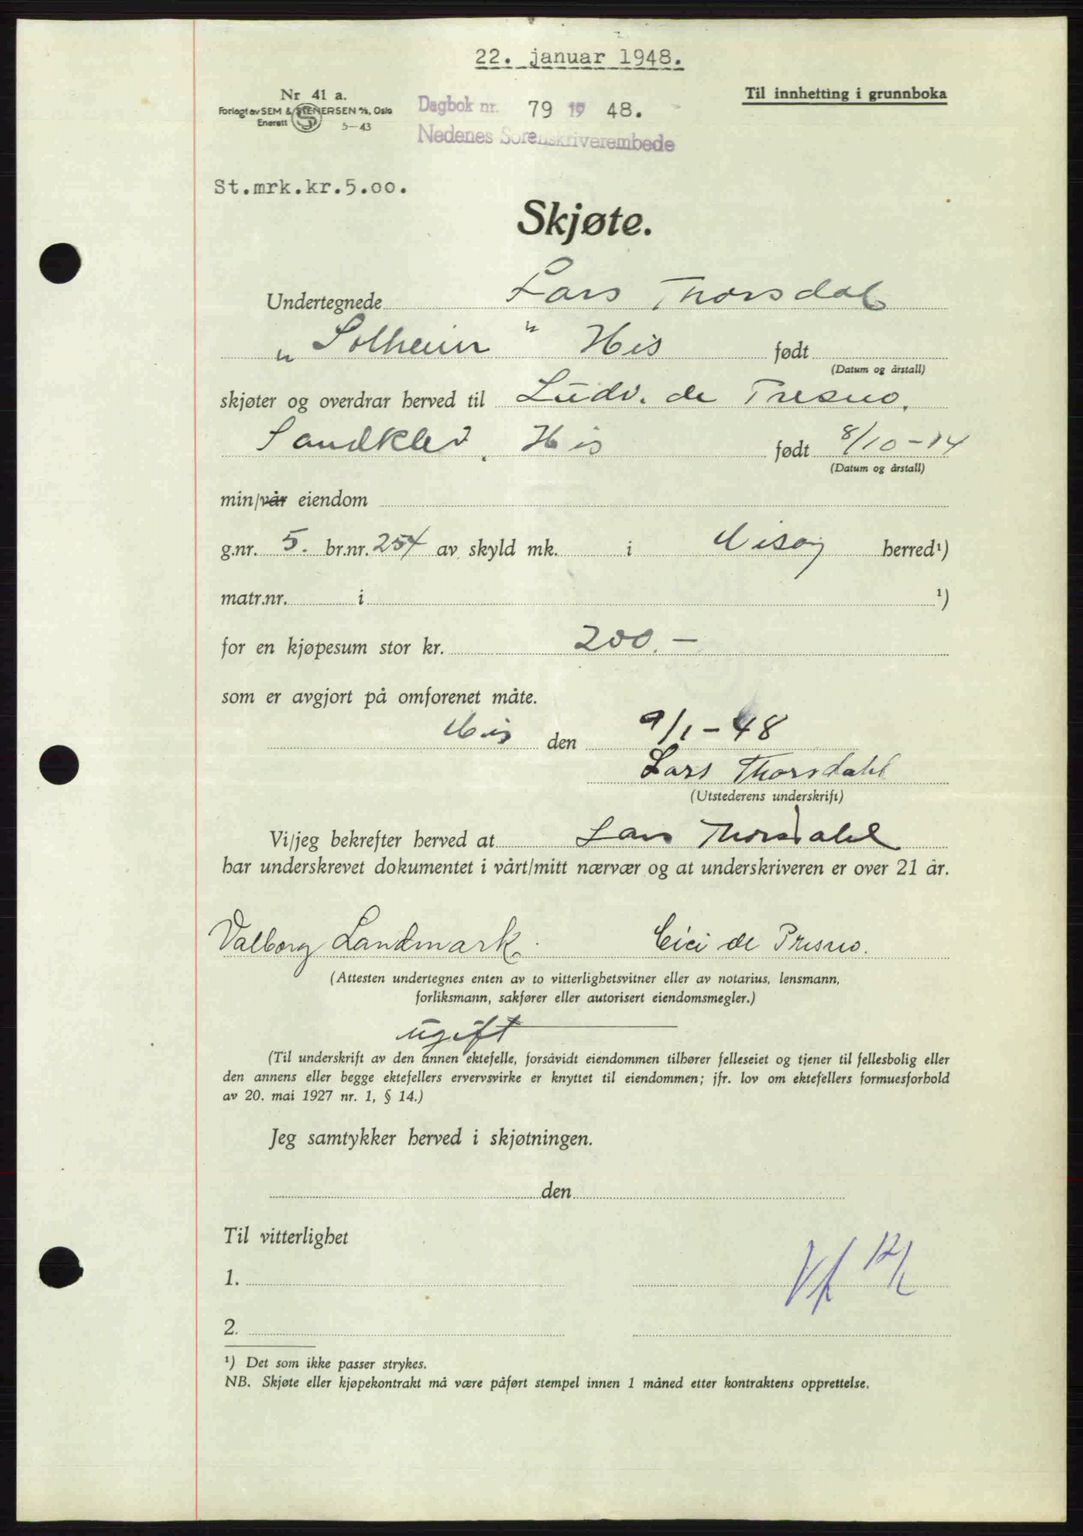 22. januar 1948.
Til innhefting i grunnboka
Nr 41 a.
Forlagt av SEM & STENERSEN A/S, Oslo
Enerett
5-43
Dagbok nr. 79 19 48.
Nedenes Sorenskriverembede
St.mrk.kr.5.00.
Skjøte.
Undertegnede Lars Thorsdal
"Solheim" His født
(Datum og årstall)
skjøter og overdrar herved til Ludv. de Presno,
Sandklev, His født 8/10-14
(Datum og årstall)
min/vår eiendom
g.nr. 5. br.nr. 254 av skyld mk. i Hisøy herred¹)
matr.nr. i ¹)
for en kjøpesum stor kr. 200.-
som er avgjort på omforenet måte.
His den 9/1-48
Lars Thorsdahl
(Utstederens underskrift)
Vi/jeg bekrefter herved at Lars Thorsdahl
har underskrevet dokumentet i vårt/mitt nærvær og at underskriveren er over 21 år.
Valborg Landmark. Cici de Presno.
(Attesten undertegnes enten av to vitterlighetsvitner eller av notarius, lensmann,
forliksmann, sakfører eller autorisert eiendomsmegler.)
ugift
(Til underskrift av den annen ektefelle, forsåvidt eiendommen tilhører felleseiet og tjener til fellesbolig eller
den annens eller begge ektefellers ervervsvirke er knyttet til eiendommen; jfr. lov om ektefellers formuesforhold
av 20. mai 1927 nr. 1, § 14.)
Jeg samtykker herved i skjøtningen.
den
Til vitterlighet
1.
2.
¹) Det som ikke passer strykes.
NB. Skjøte eller kjøpekontrakt må være påført stempel innen 1 måned etter kontraktens opprettelse.